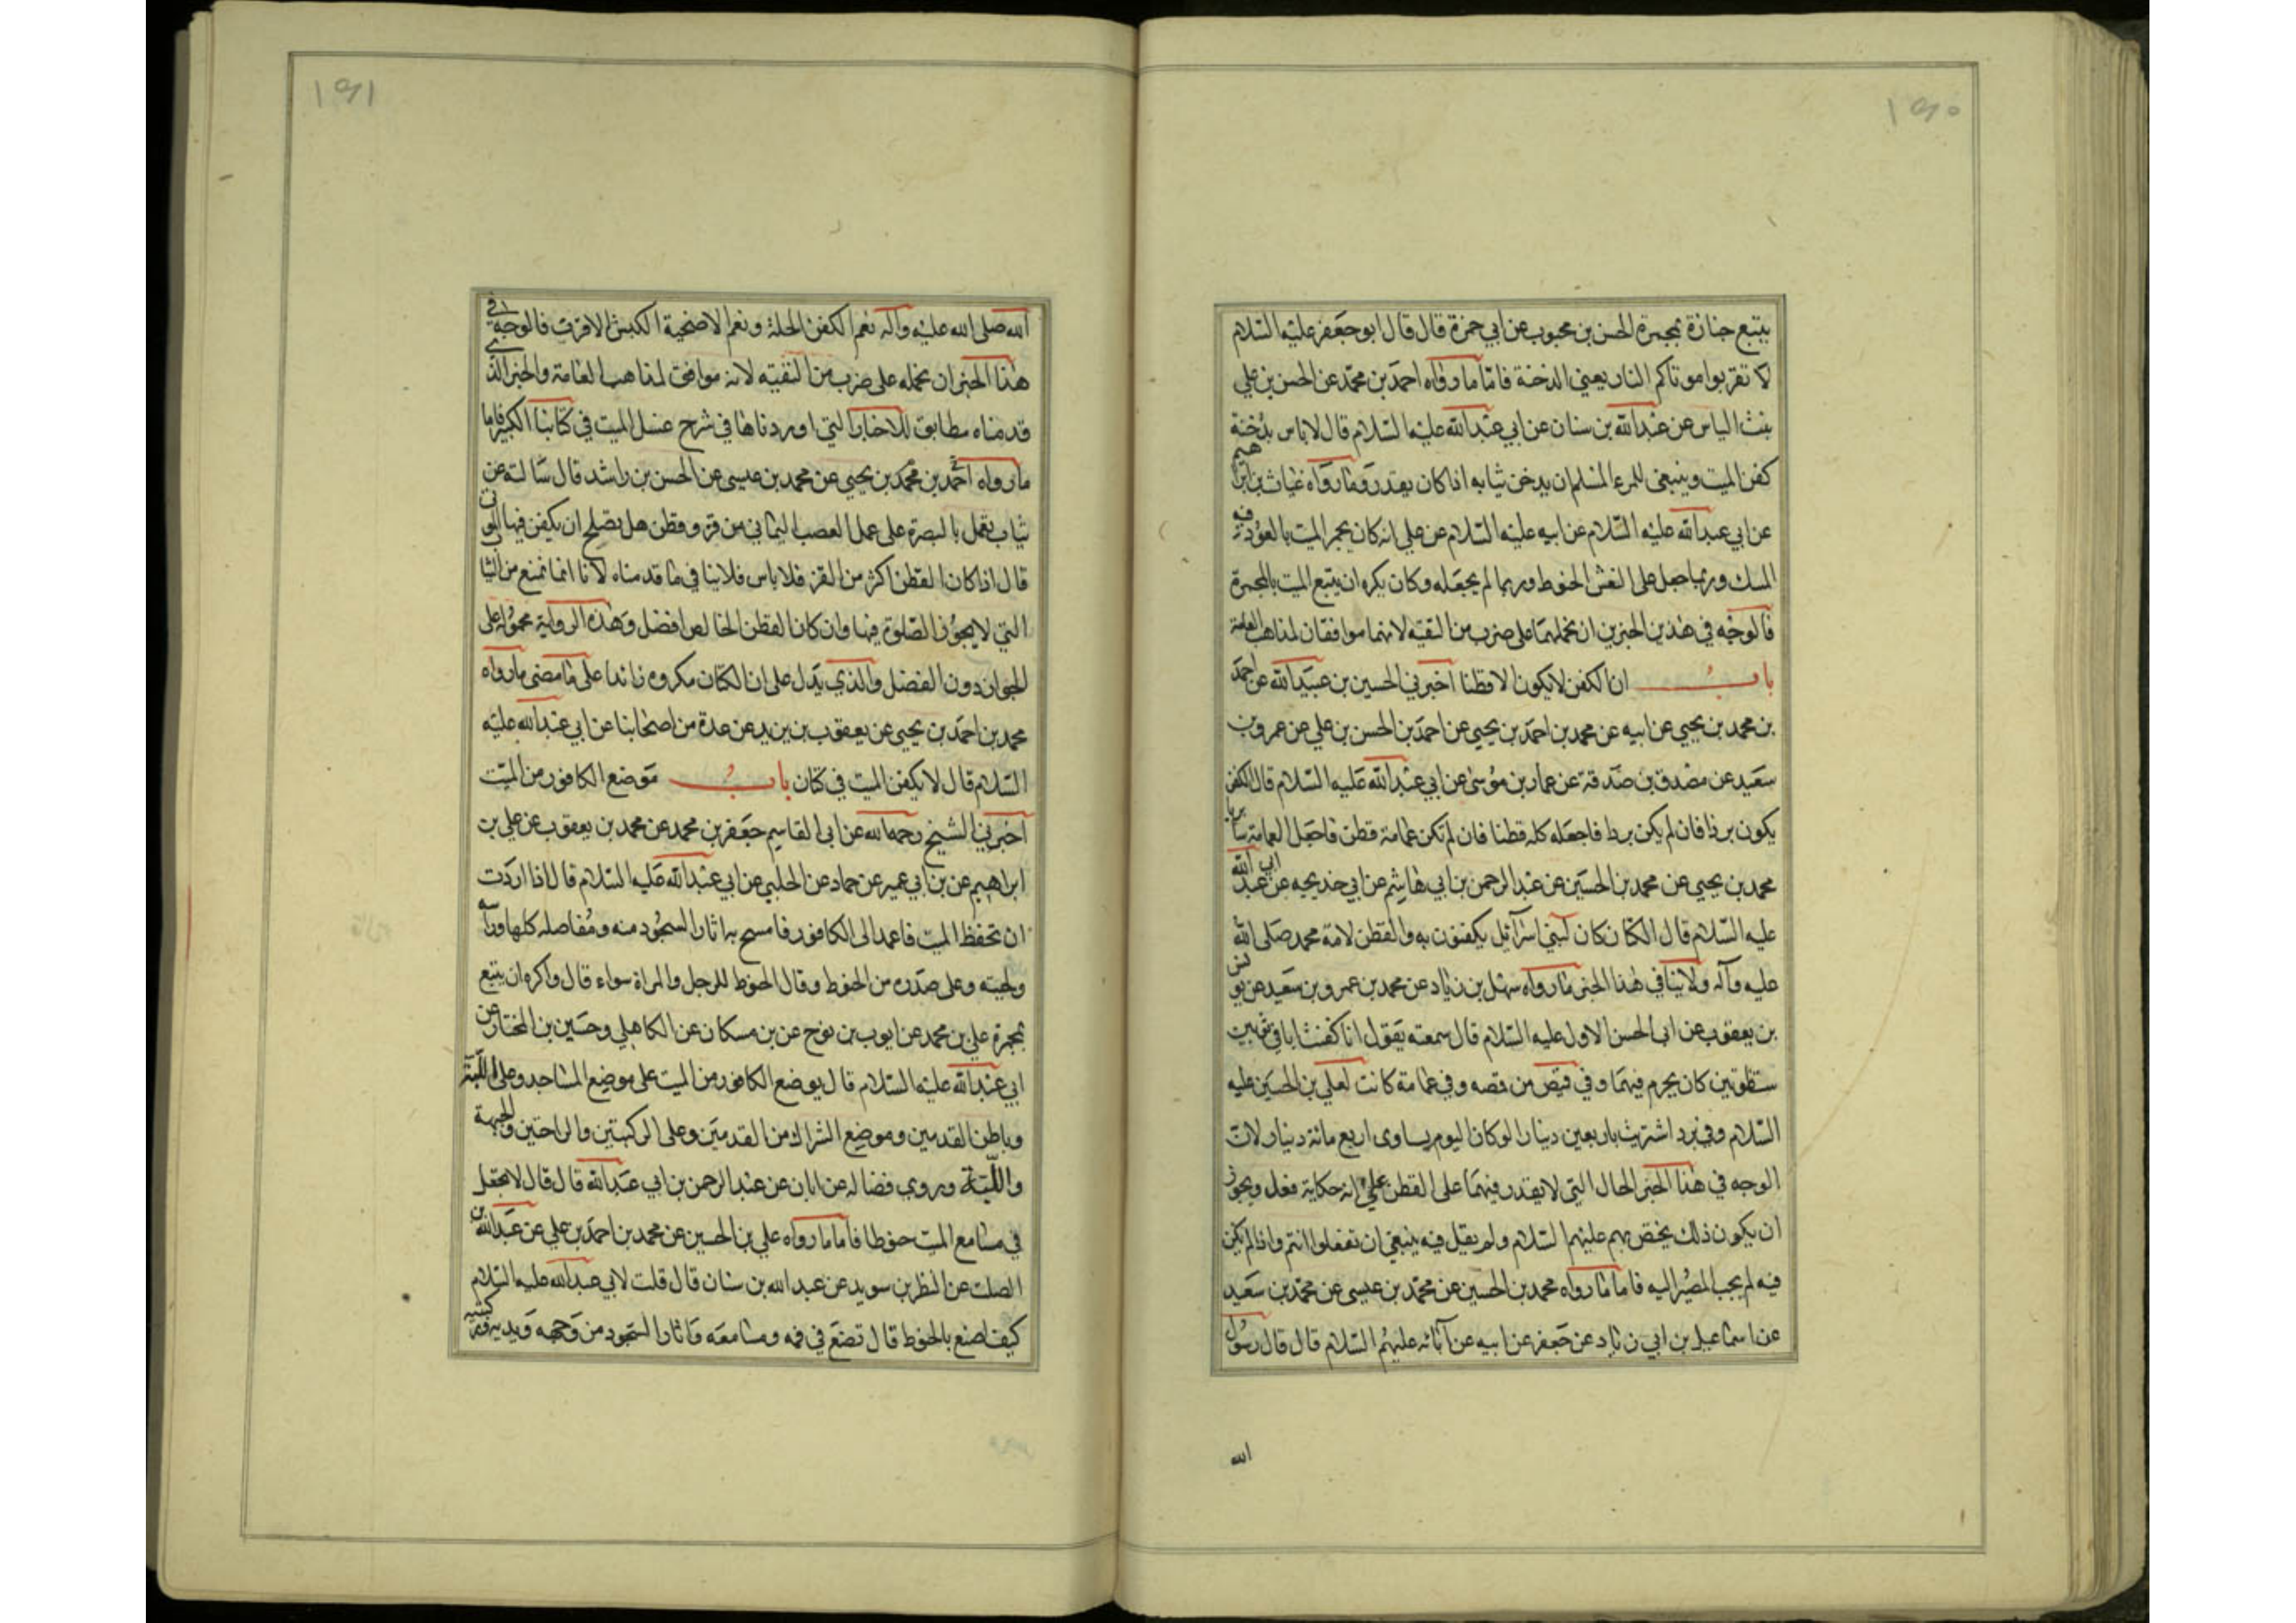 ١٩٠
يتبع جنازة بمجمرة الحسن بن محبوب عن ابي حمزة قال قال ابو جعفر عليه السلام
لا تقربوا موتاكم النار يعني الدخنة فامّا ما رواه احمد بن محمّد عن الحسن بن علي
بنت الياس عن عبد الله بن سنان عن ابي عبد الله عليه السلام قال لا باس بدُخنة
كفن الميت وينبغي للمرء المسلم ان يدخن ثيابه اذا كان يقدر وما رواه غياث بن ابراهيم
عن ابي عبد الله عليه السلام عن ابيه عليه السلام عن علي انه كان يجمر الميت بالعود فيه
المسك وربما جعل على النعش الحنوط وربما لم يجعله وكان يكره ان يتبع الميت بالمجمرة
فالوجه في هذين الخبرين ان نحملهما على ضرب من التقيه لانهما موافقان لمذاهب العامة
باب ان الكفن لا يكون الا قطنا اخبرني الحسين بن عبيد الله عن احمد
بن محمد بن يحيى عن ابيه عن محمد بن احمد بن يحيى عن احمد بن الحسن بن علي عن عمرو بن
سعيد عن مصدق بن صدقة عن عمار بن موسى عن ابي عبد الله عليه السلام قال الكفن
يكون بردا فان لم يكن بردا فاجعله كله قطنا فان لم تكن عمامة قطن فاجعل العمامة سابريا
محمد بن يحيى عن محمد بن الحسين عن عبد الرحمن بن ابي هاشم عن ابي خديجه عن ابي عبد الله
عليه السلام قال الكتان كان لبني اسرآئيل يكفنون به والقطن لامة محمد صلى الله
عليه وآله ولا ينافي هذا الخبر ما رواه سهل بن زياد عن محمد بن عمرو بن سعيد عن يونس
بن يعقوب عن ابي الحسن الاول عليه السلام قال سمعته يقول انا كفنت ابي في ثوبين
شطويين كان يحرم فيهما وفي قميص من قمصه وفي عمامة كانت لعلي بن الحسين عليه
السلام وفي برد اشتريت باربعين دينارا لو كان اليوم يساوى اربع مائة دينار لان
الوجه في هذا الخبر الحال التي لا يقدر فيهما على القطن على انه حكاية فعل ويجوز
ان يكون ذلك يختص بهم عليهم السلام ولم يقل فيه ينبغي ان تفعلوا انتم واذا لم يكن
فيه لم يجب المصير اليه فاما ما رواه محمد بن الحسين عن محمد بن عيسى عن محمد بن سعيد
عن اسماعيل بن ابي زياد عن جعفر عن ابيه عن آبائه عليهم السلام قال قال رسول
الله
١٩١
الله صلى الله عليه وآله نعم الكفن الحلة ونعم الاضحية الكبش الاقرن فالوجه في
هذا الخبر ان نحمله على ضرب من التقيه لانه موافق لمذاهب العامة والخبر الذي
قدمناه مطابق للاخبار التي اوردناها في شرح غسل الميت في كتابنا الكبير فاما
ما رواه احمد بن محمد بن يحيى عن محمد بن عيسى عن الحسن بن راشد قال سالته عن
ثياب تعمل بالبصرة على عمل العصب اليماني من قز وقطن هل يصلح ان يكفن فيها الموتى
قال اذا كان القطن اكثر من القز فلا باس فلا ينافي ما قدمناه لانا انما نمنع من الثيا
التي لا يجوز الصلوة فيها وان كان القطن الخالص افضل وهذه الرواية محمولة على
الجواز دون الفضل والذي يدل على ان الكتان مكروه زائدا على ما مضى ما رواه
محمد بن احمد بن يحيى عن يعقوب بن يزيد عن عدة من اصحابنا عن ابي عبد الله عليه
السلام قال لا يكفن الميت في كتان باب موضع الكافور من الميت
اخبرني الشيخ رحمه الله عن ابي القاسم جعفر بن محمد عن محمد بن يعقوب عن علي بن
ابراهيم عن بن ابي عمير عن حماد عن الحلبي عن ابي عبد الله عليه السلام قال اذا اردت
ان تحفظ الميت فاعمد الى الكافور فامسح به اثار السجود منه ومفاصله كلها وراسه
ولحيته وعلى صدره من الحنوط وقال الحنوط للرجل والمراة سواء قال واكره ان يتبع
بمجمرة علي بن محمد عن ايوب بن نوح عن بن مسكان عن الكاهلي وحسين بن المختار عن
ابي عبد الله عليه السلام قال يوضع الكافور من الميت على موضع المساجد وعلى اللبة
وباطن القدمين وموضع الشراك من القدمين وعلى الركبتين والراحتين والجبهة
واللبة وروى فضاله عن ابان عن عبد الرحمن بن ابي عبد الله قال قال لا تجعل
في مسامع الميت حنوطا فاما ما رواه علي بن الحسين عن محمد بن احمد بن علي عن عبد الله بن
الصلت عن النظر بن سويد عن عبد الله بن سنان قال قلت لابي عبد الله عليه السلام
كيف اصنع بالحنوط قال تضع في فمه ومسامعه واثار السجود من وجهه ويديه وركبتيه